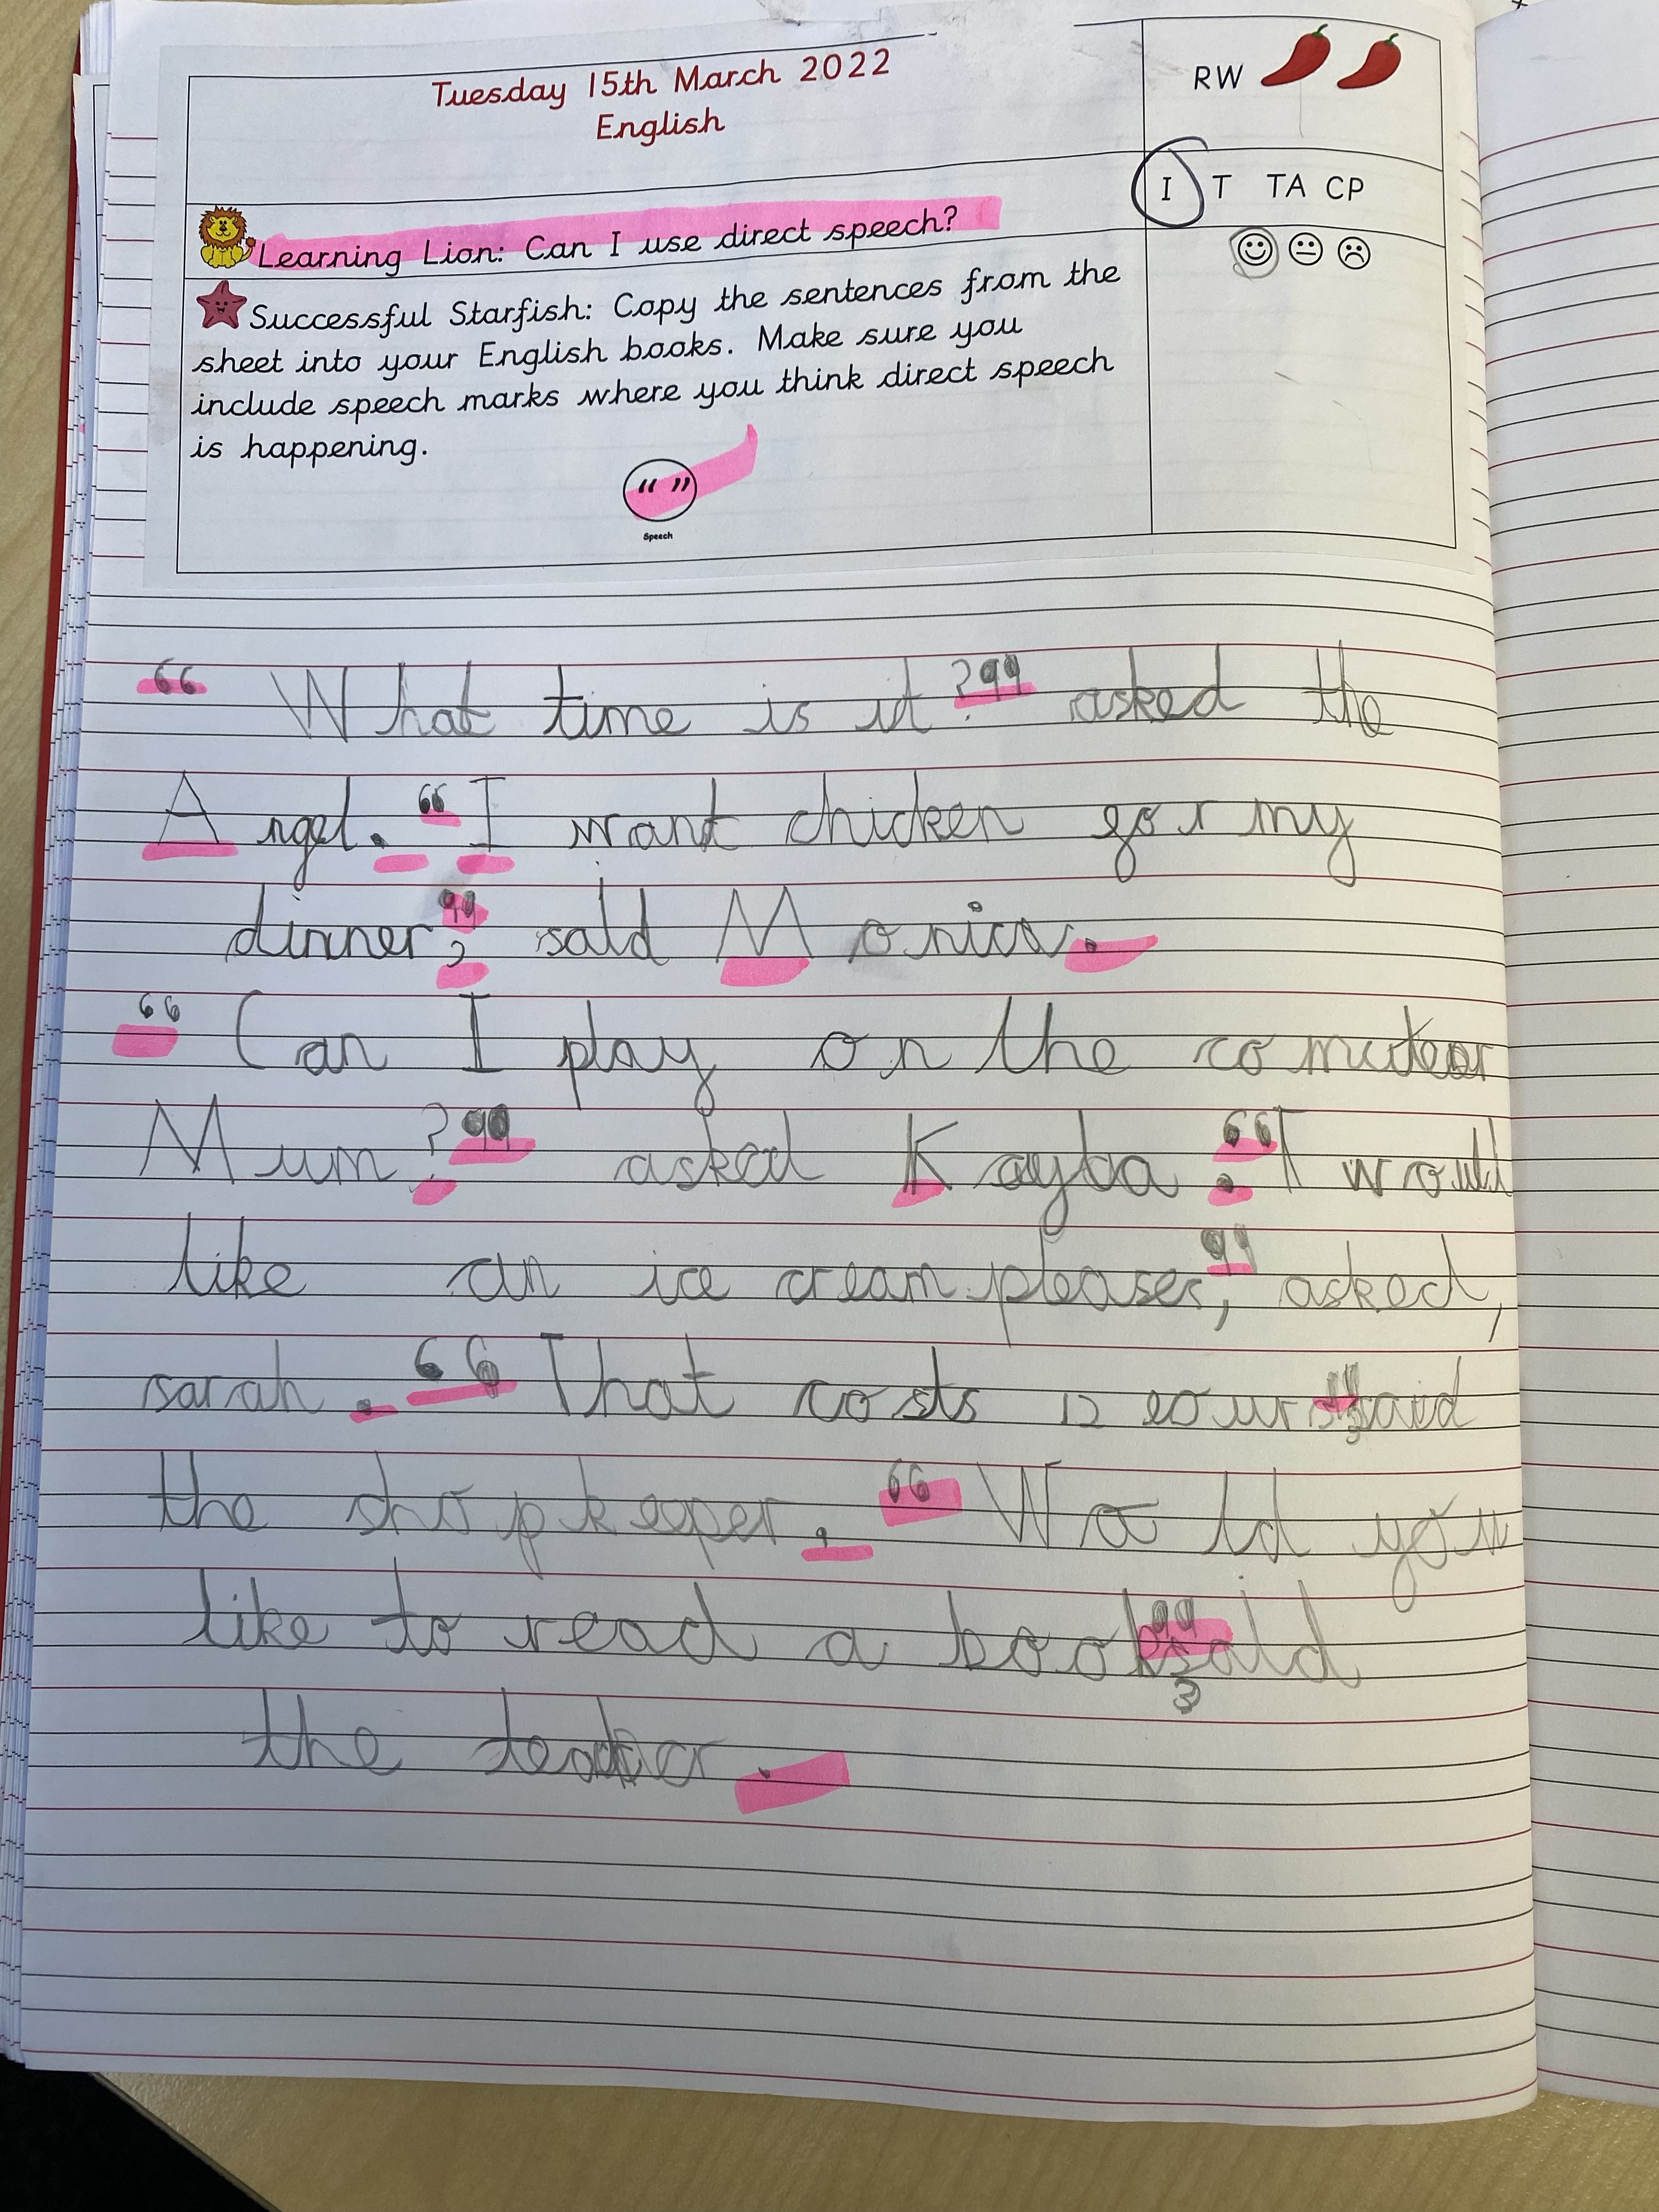 Tuesday 15th March 2022
English
RW
I T TA CP
Learning Lion: Can I use direct speech?
Successful Starfish: Copy the sentences from the
sheet into your English books. Make sure you
include speech marks where you think direct speech
is happening.
“ ”
Speech
“ What time is it?” asked the
Angel. “I want chicken for my
dinner”, said Monica.
“ Can I play on the comutear
Mum?” asked Kayba. “I would
like an ice cream please”, asked,
sarah. “That costs 12 eours”, said
the shopkeeper. “Woold you
like to read a book”, said
the teacher.